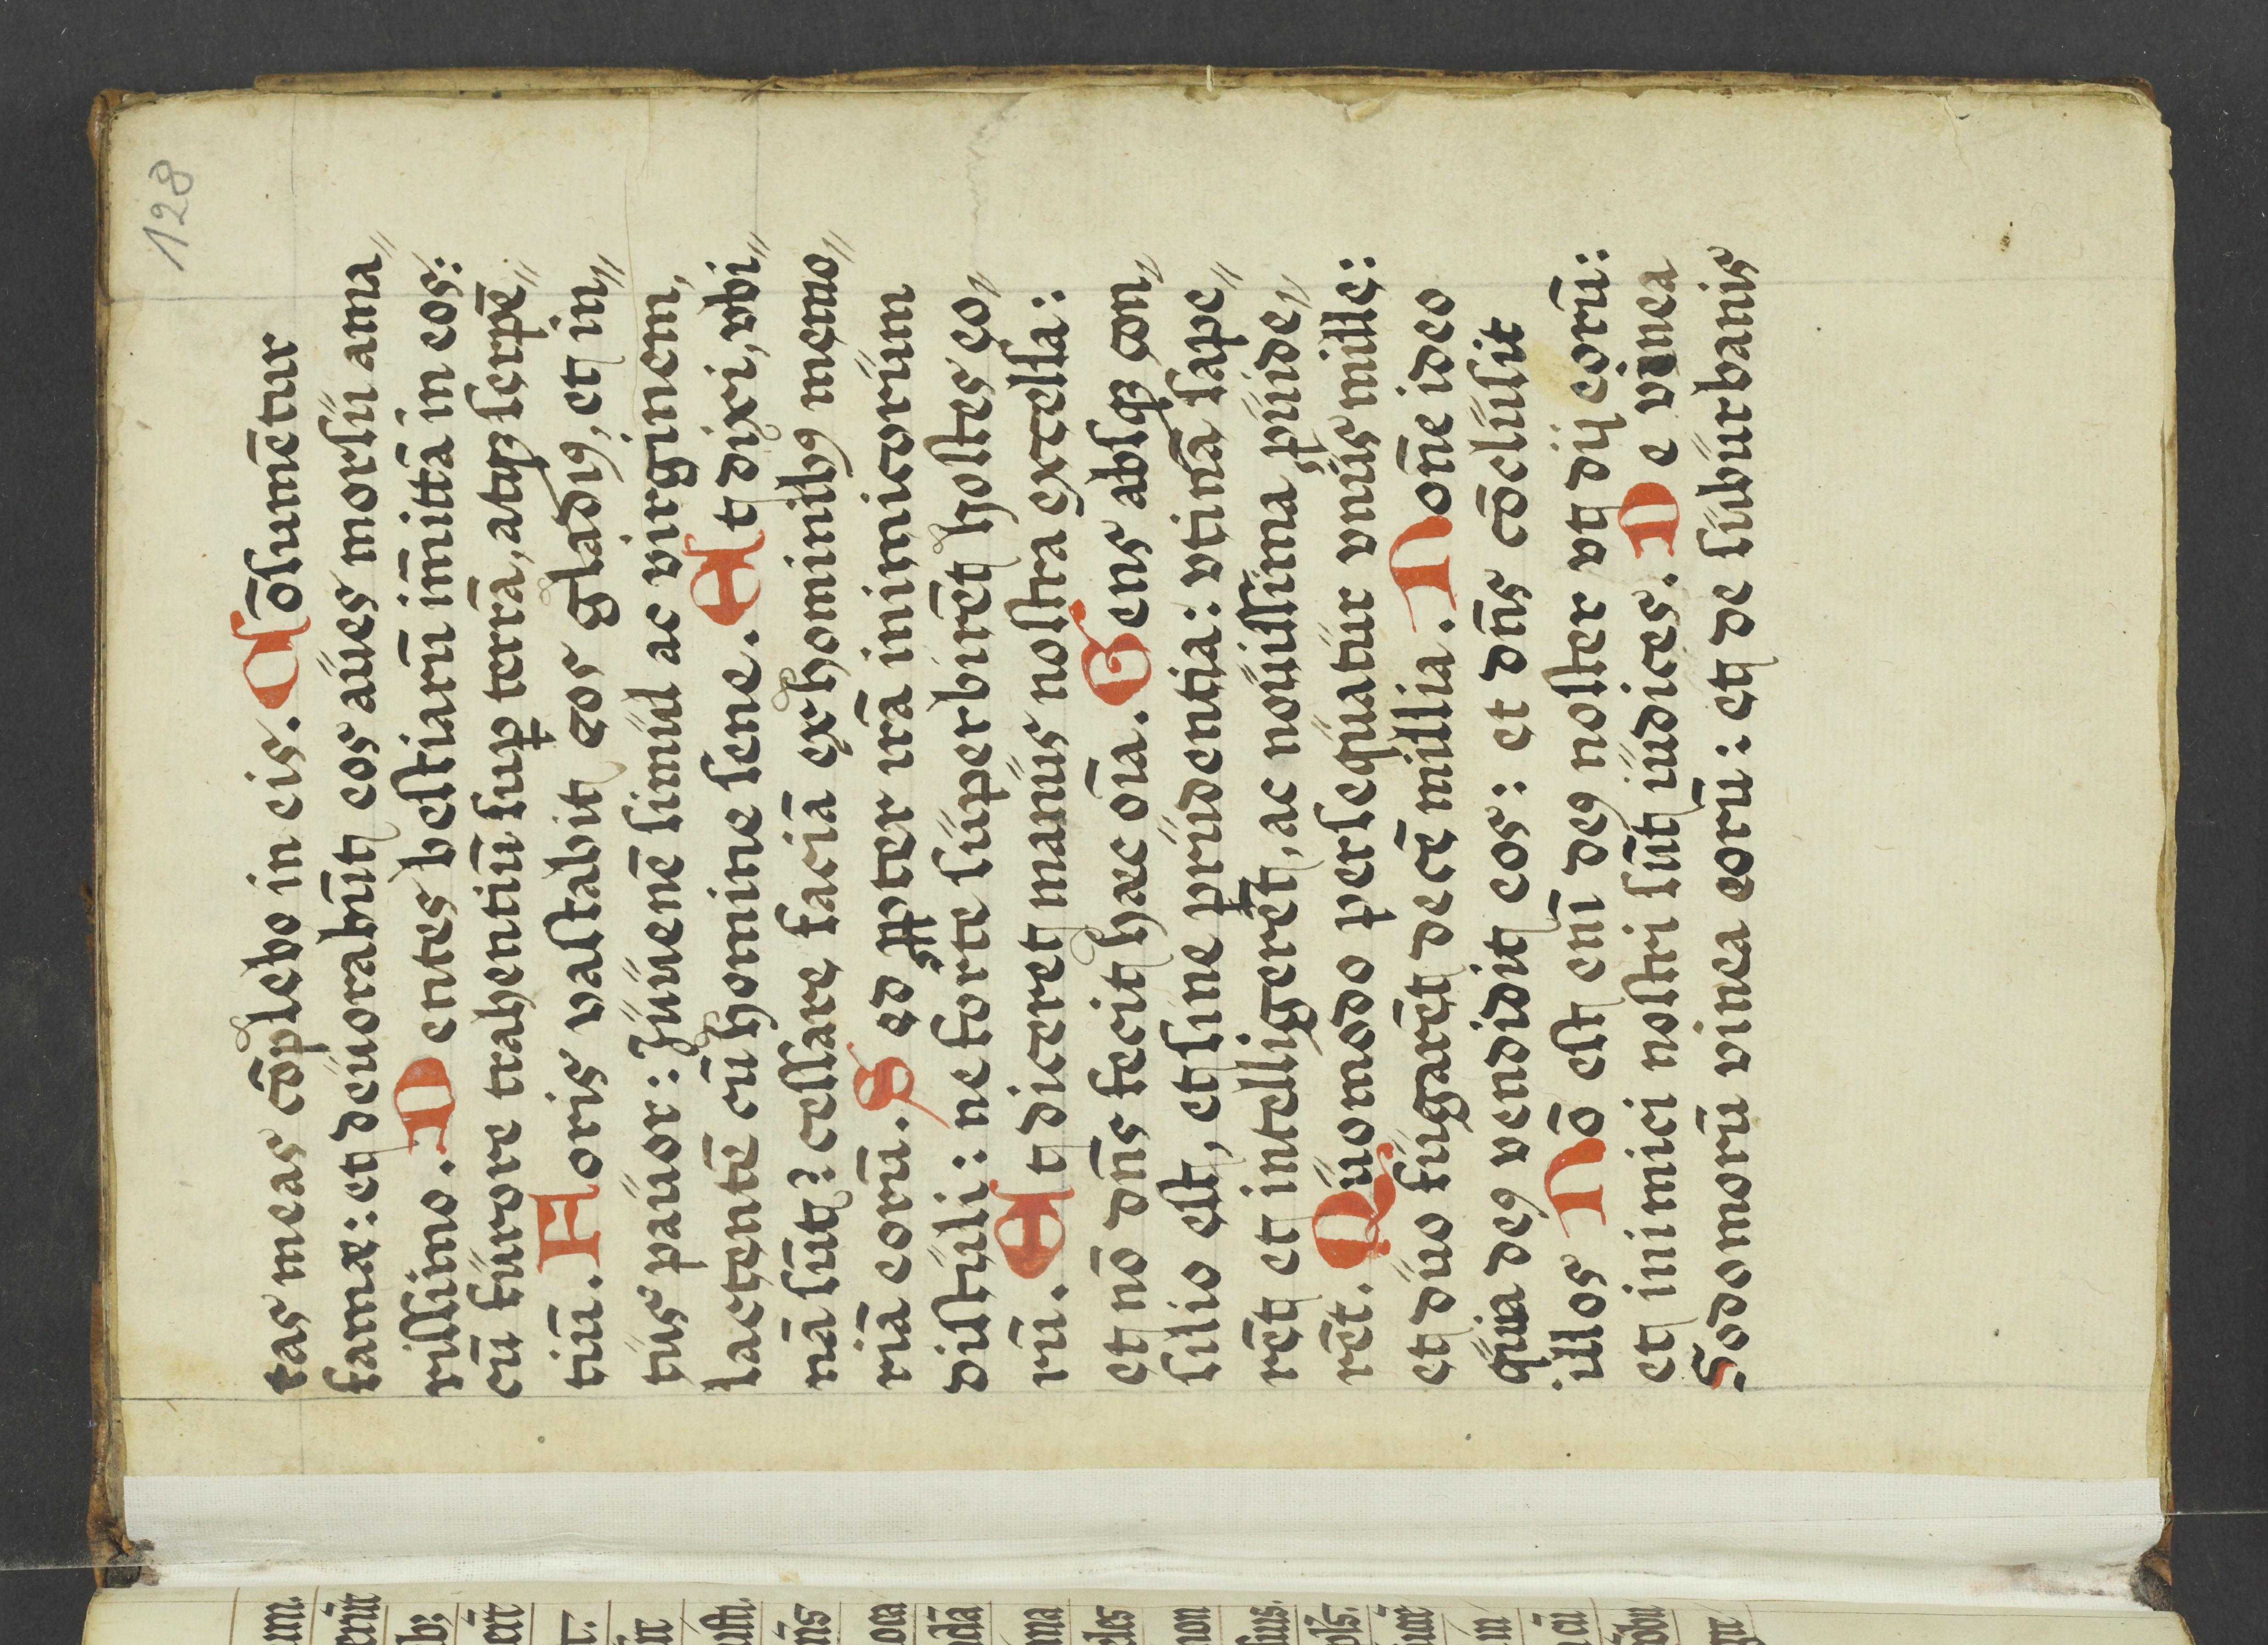 128
tas meas cōplebo in eis. Cōsumētur
fame: et deuorabūt eos aues morsu ama//
rissimo. Dentes bestiarū im̄ittā in eos:
cū furore trahentiū sup terrā, atqꝫ serpē//
tiū. Foris vastabit eos gladiꝰ, et in//
tus pauor: Juuenē simul ac virginem,
lactentē cū homine sene. Et dixi, vbi//
nā sūt? cessare faciā ex hominibꝰ memo//
riā eorū. Sed ꝓpter irā inimicorum
distuli: ne forte superbirēt hostes eo//
rū. Et dicerēt manus nostra excelsa:
et nō dn̄s fecit hæc oīa. Gens absqꝫ con//
silio est, et sine prudentia: vtinā sape//
rēt et intelligerēt, ac nouissima ꝓuide//
rēt. Quomodo persequatur vnus mille:
et duo fugarēt decē millia. Non̄e ideo
quia deꝰ vendidit eos: et dn̄s cōclusit
illos Nō est enī deꝰ noster vt dij eorū:
et inimici nostri sūt iudices. De vinea
Sodomorū vinea eorū: et de suburbanis